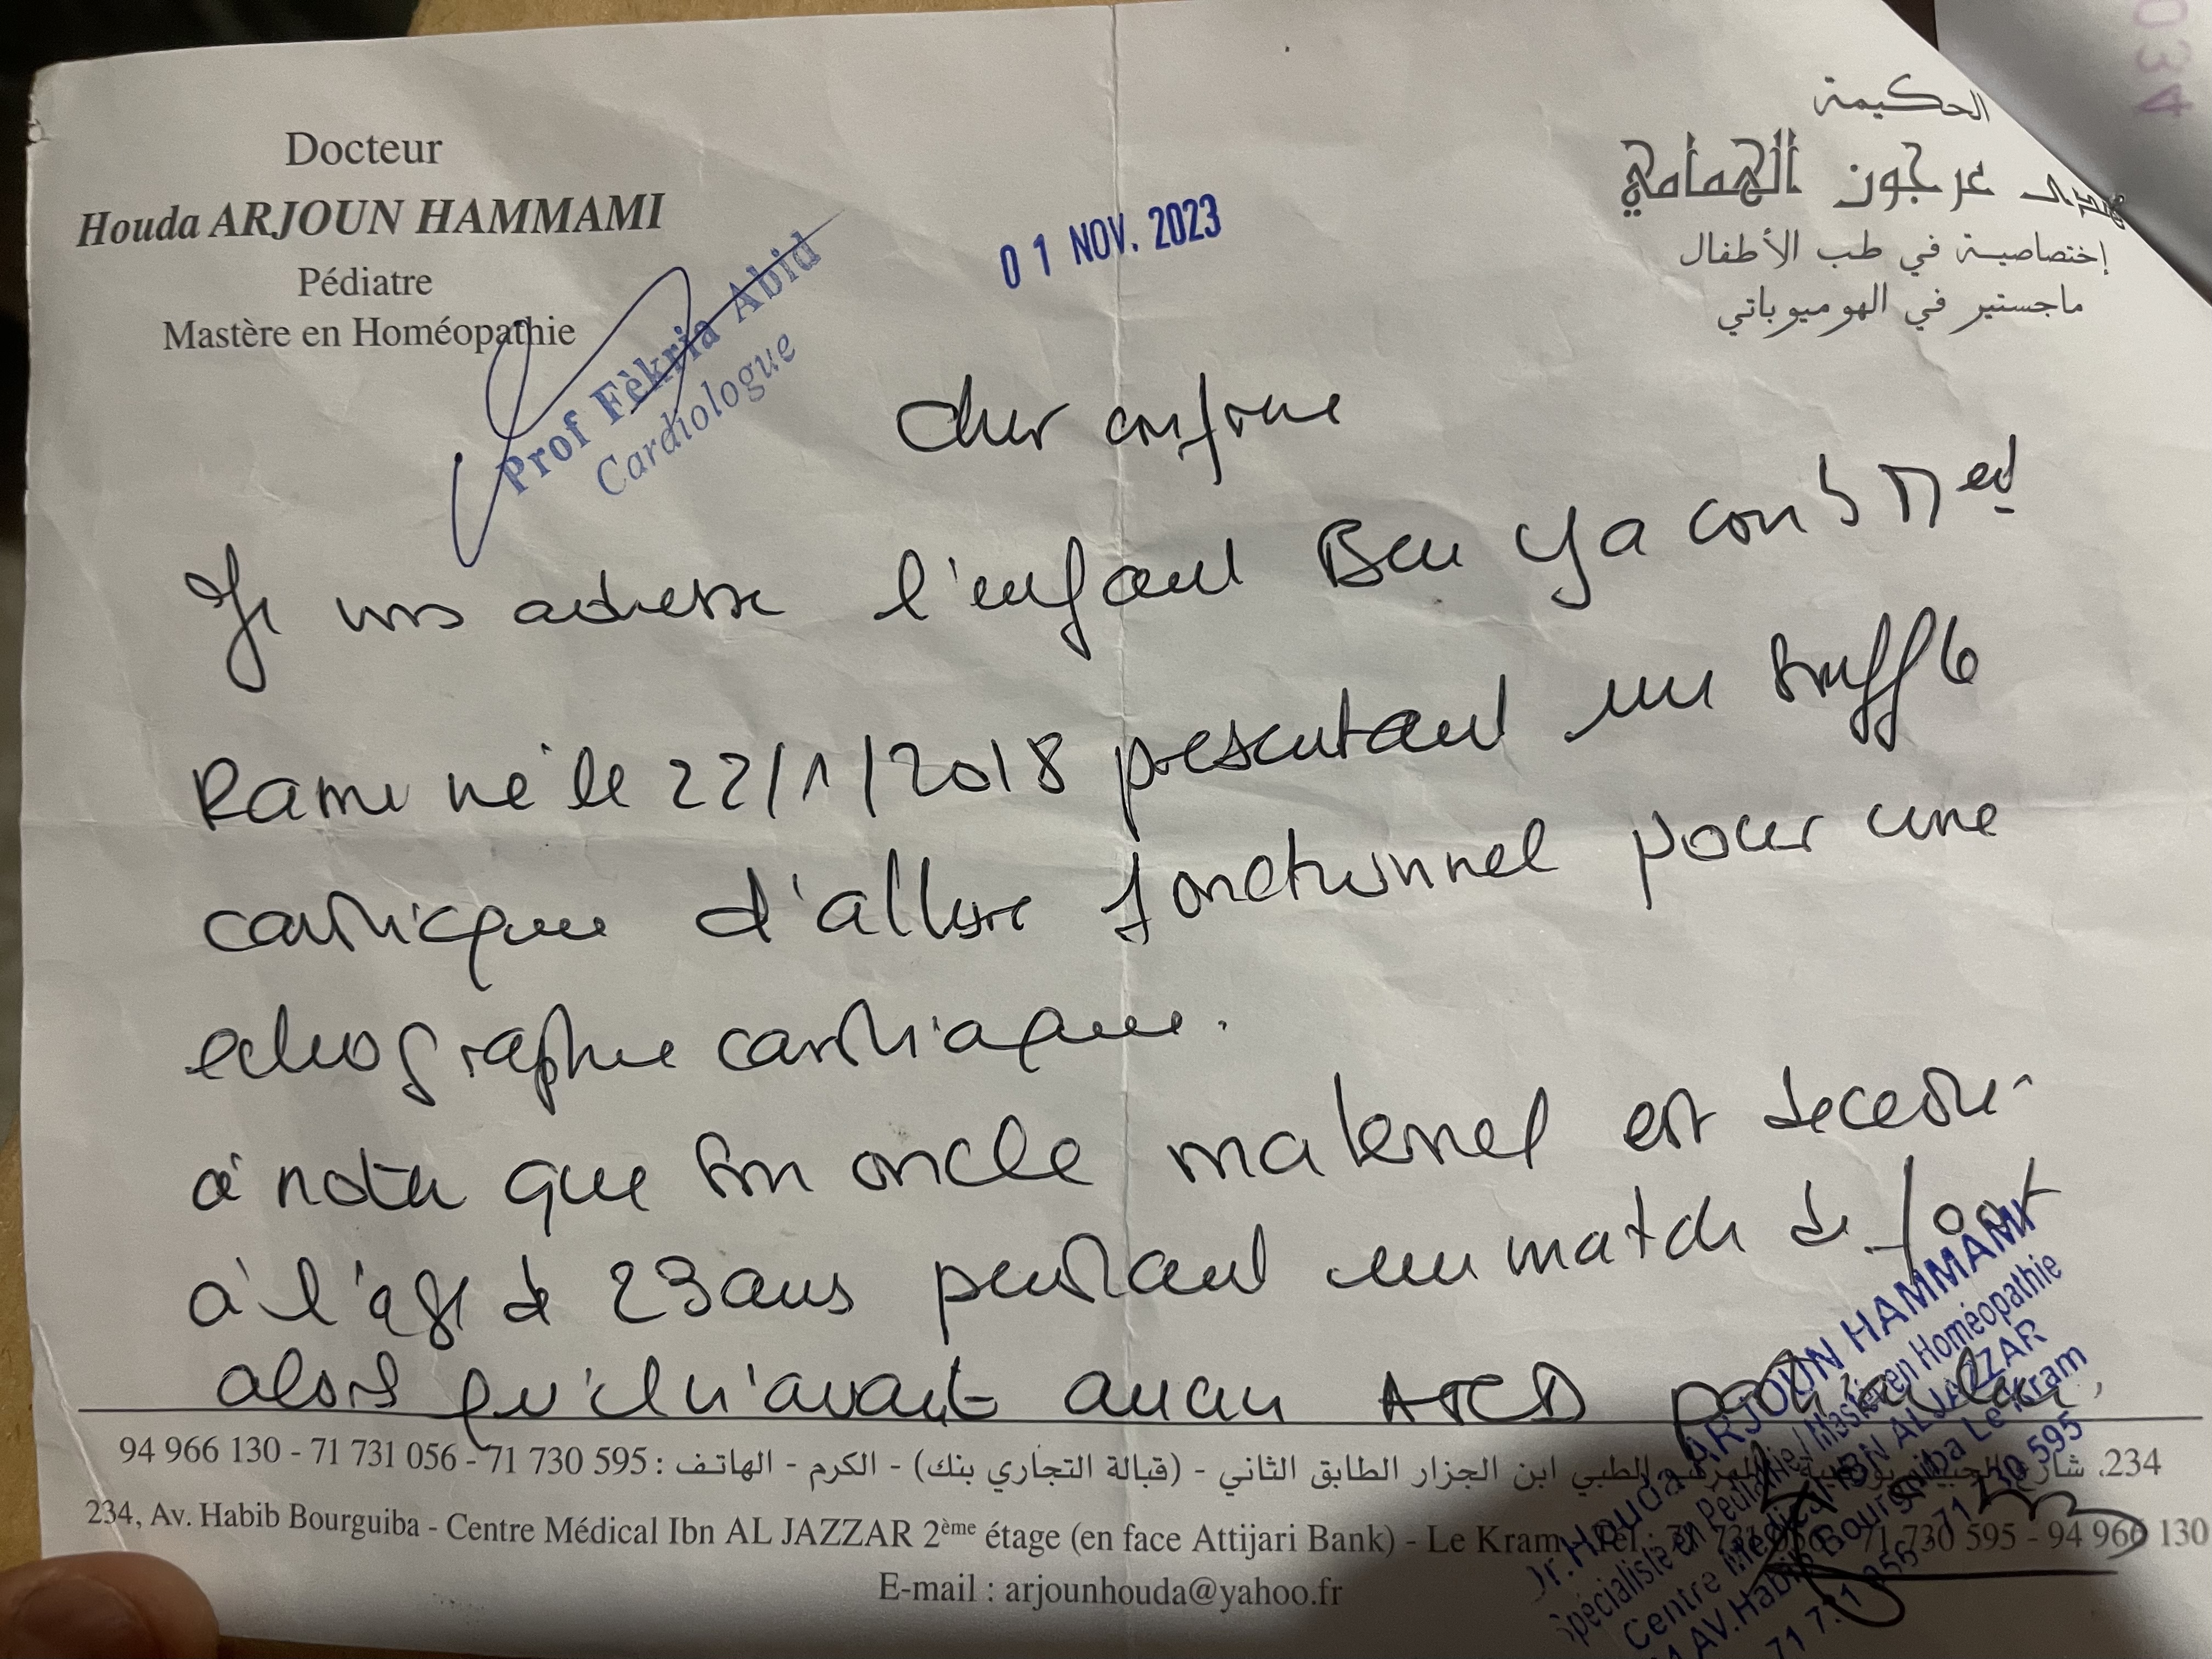 Docteur
Houda ARJOUN HAMMAMI
Pédiatre
Mastère en Homéopathie
الحكيمة
عرجون الهمامي
إختصاصية في طب الأطفال
ماجستير في الهوميوباتي
01 NOV. 2023
Prof Fèkria Abid
Cardiologue
Cher confrère
Je vous adresse l'enfant Ben Yacoub Med
Rami né le 22/1/2018 présentant un souffle
cardiaque d'allure fonctionnel pour une
echographie cardiaque.
à noter que son oncle maternel est décédé
à l'âge de 23 ans pendant un match de foot
alors qu'il n'avait aucun ATCD particulier,
234، شارع الحبيب بورقيبة المركب الطبي ابن الجزار الطابق الثاني - (قبالة التجاري بنك) - الكرم - الهاتف : 595 730 71 - 056 731 71 - 130 966 94
234, Av. Habib Bourguiba - Centre Médical Ibn AL JAZZAR 2ème étage (en face Attijari Bank) - Le Kram - Tél.: 71 731 056 - 71 730 595 - 94 966 130
E-mail : arjounhouda@yahoo.fr
Dr. Houda ARJOUN HAMMAMI
Spécialiste en Pédiatrie / Mastère en Homéopathie
Centre Médical IBN AL JAZZAR
AV. Habib Bourguiba Le Kram
71 731 056 - 71 730 595
034